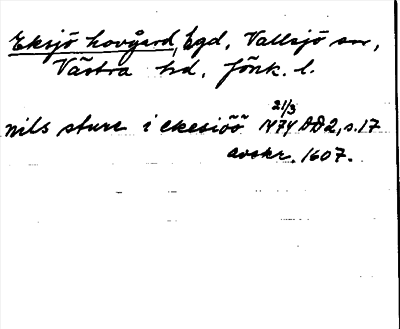 Eksjö hovgård, bgd, Vallsjö sn,
Västra hd, Jönk. l.
21/3
nils sture i ekesiöö 1474 DD2, s. 17
avskr. 1607.